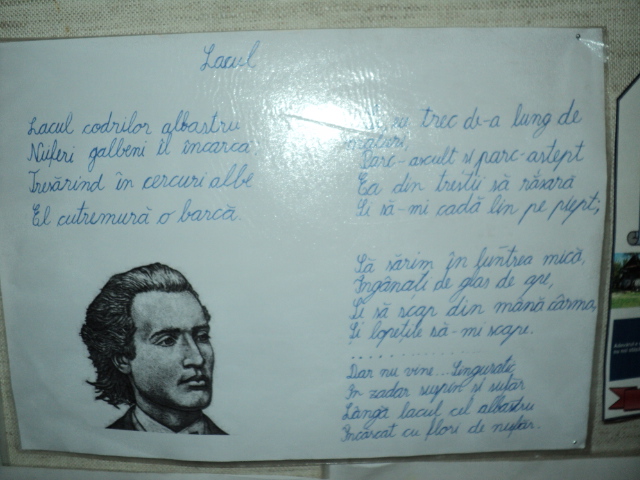 Lacul
Lacul codrilor albastru
Nuferi galbeni îl încarca,
Tresărind în cercuri albe
El cutremură o barcă.
eu trec de-a lung de
maluri,
Parc-ascult si parc-astept
Ea din trestii să răsară
Şi să-mi cadă lin pe piept;
Să sărim în luntrea mică,
Îngânaţi de glas de ape,
Şi să scap din mână cârma,
Şi lopeţile să-mi scape.
Dar nu vine... Singuratic
În zadar suspin si sufăr
Lângă lacul cel albastru
Încărcat cu flori de nufăr.